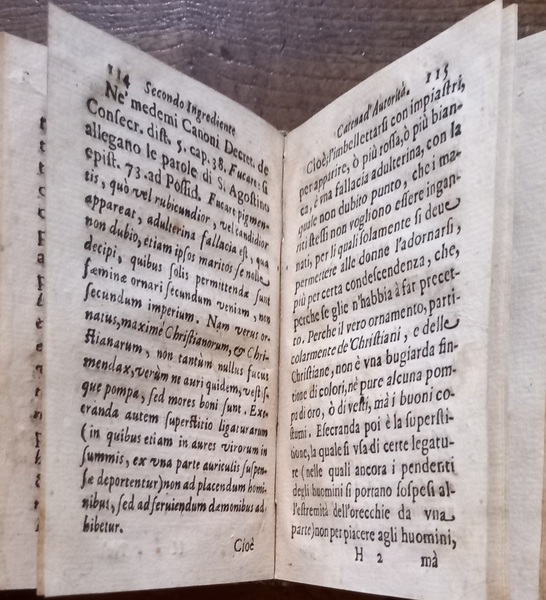 114 Secondo Ingrediente
Ne' medemi Canoni Decret. de
Consecr. dist. 5. cap. 38. Fucare: si
allegano le parole di S. Agostino
epist. 73. ad Possid. Fucare pigmen-
tis, quò vel rubicundior, vel candidior
appareat, adulterina fallacia est, qua
non dubio, etiam ipsos maritos se nolle
decipi, quibus solis permittendæ sunt
fæminæ ornari secundum veniam, non
secundum imperium. Nam verus or-
natus, maximè Christianorum, & Chri-
stianarum, non tantùm nullus fucus
mendax, verùm ne auri quidem, vestis-
que pompa, sed mores boni sunt. Exe-
cranda autem superstitio ligaturarum
(in quibus etiam in aures virorum in
summis, ex vna parte auriculis suspen-
sæ deportentur) non ad placendum homi-
nibus, sed ad seruiendum dæmonibus ad-
hibetur.
Cioè
Catena d'Autorità. 115
Cioè, l'imbellettarsi con impiastri,
per apparire, ò più rossa, ò più bian-
ca, è vna fallacia adulterina, con la
quale non dubito punto, che i ma-
riti stessi non voghono essere ingan-
nati, per li quali solamente si deue
permettere alle donne l'adornarsi,
più per certa condescendenza, che,
perche se glie n'habbia à far precet-
to. Perche il vero ornamento, parti-
colarmente de' Christiani, e delle
Christiane, non è vna bugiarda fin-
tione di colori, nè pure alcuna pom-
pa di oro, ò di vesti, mà i buoni co-
stumi. Esecranda poi è la supersti-
tione, la quale si vsa di certe legatu-
re (nelle quali ancora i pendenti
degli huomini si portano sospesi al-
l'estremità dell'orecchie da vna
parte) non per piacere agli huomini,
H 2 mà